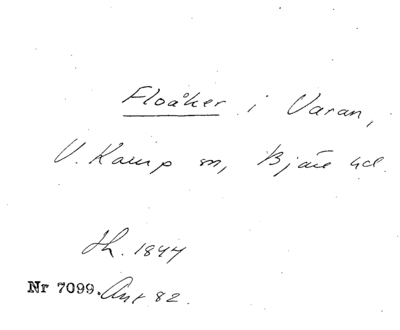 Floåker i Varan,
V. Karup sn, Bjäre hd.
Th. 1844
Nr 7099. Ant 82.